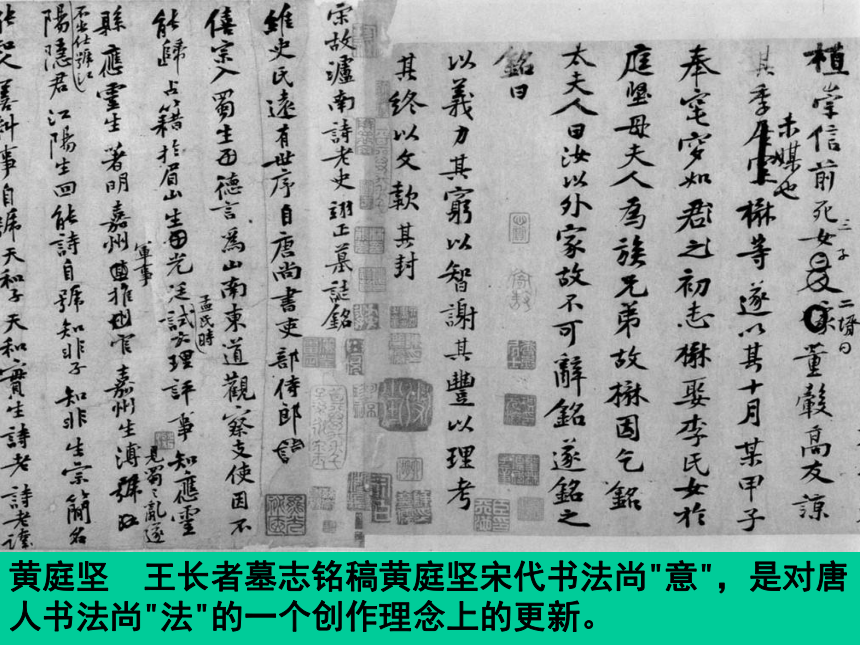 植崇信前死女
三子
二壻曰
董毅高友諒
其季
未媒也
楙等遂以其十月某甲子
奉窀穸如君之初志楙娶李氏女於
庭堅母夫人為族兄弟故楙因乞銘
太夫人曰汝以外家故不可辭銘遂銘之
銘曰
以義力其窮以智謝其豐以理考
其終以文款其封
宋故瀘南詩老史翊正墓誌銘
維史氏遠有世序自唐尚書吏部侍郎
僖宗入蜀生德言為山南東道觀察支使因不
能歸占籍於眉山生光廷試大理評事知應靈
孟氏時
見蜀亂遂
縣應靈生著明嘉州推官嘉州生溥
軍事
不出仕號江
陽隱君江陽生回能詩自號知非子知非生宗簡名
能知人善料事自號天和子天和實生詩老詩老諱
黄庭坚　王长者墓志铭稿黄庭坚宋代书法尚"意"，是对唐
人书法尚"法"的一个创作理念上的更新。